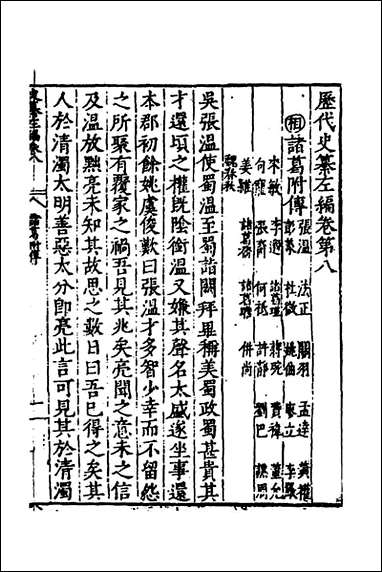 歷代史纂左編卷第八
相 諸葛附傳 張溫 法正 關羽 孟達 黃權
彭羕 杜微 姚伷 廖立 李嚴
來敏 李邈 蔣琬 費禕 董允
向寵 張裔 何祗 許靜 劉巴 譙周
姜維 諸葛瞻 尚
吳張溫使蜀溫至蜀詣闕拜畢稱美蜀政蜀甚貴其
才還頃之權旣陰銜溫又嫌其聲名太盛遂坐事還
本郡初餘姚虞俊歎曰張溫才多智少幸而不留怨
之所聚有覆家之禍吾見其兆矣亮聞之意未之信
及溫放黜亮未知其故思之數日曰吾已得之矣其
人於清濁太明善惡太分卽亮此言可見其於清濁
史纂左編卷八 諸葛附傳 一